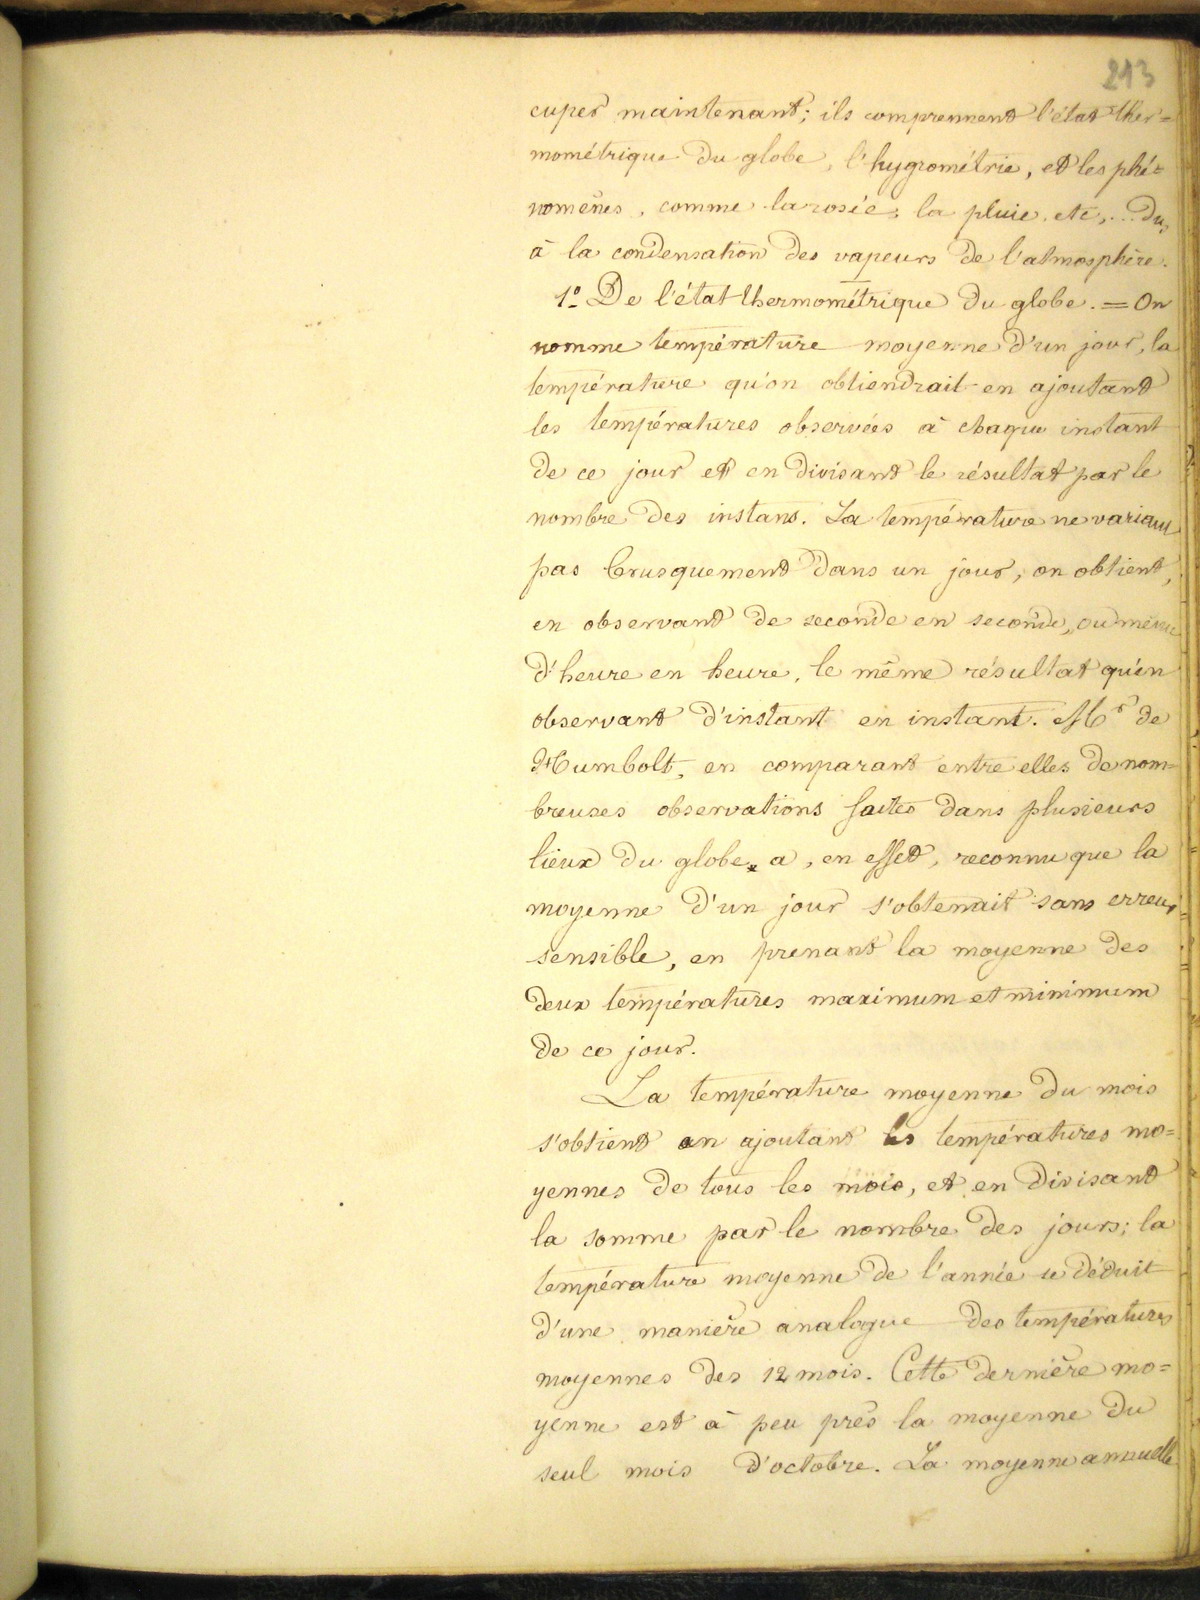 213
cuper maintenant; ils comprennent l'état ther=
mométrique du globe, l'hygrométrie, et les phé=
nomènes, comme la rosée, la pluie, etc,... dus
à la condensation des vapeurs de l'atmosphère.
1º De l'état thermométrique du globe. = On
nomme température moyenne d'un jour, la
température qu'on obtiendrait en ajoutant
les températures observées à chaque instant
de ce jour et en divisant le résultat par le
nombre des instans. La température ne variant
pas brusquement dans un jour, on obtient,
en observant de seconde en seconde, ou même
d'heure en heure, le même résultat qu'en
observant d'instant en instant. Mr de
Humbolt, en comparant entre elles de nom=
breuses observations faites dans plusieurs
lieux du globe, a, en effet, reconnu que la
moyenne d'un jour s'obtenait sans erreur
sensible, en prenant la moyenne des
deux températures maximum et minimum
de ce jour.
La température moyenne du mois
s'obtient en ajoutant les températures mo=
yennes de tous les mois, et en divisant
la somme par le nombre des jours; la
température moyenne de l'année se déduit
d'une manière analogue des températures
moyennes des 12 mois. Cette dernière mo=
yenne est à peu près la moyenne du
seul mois d'octobre. La moyenne annuelle